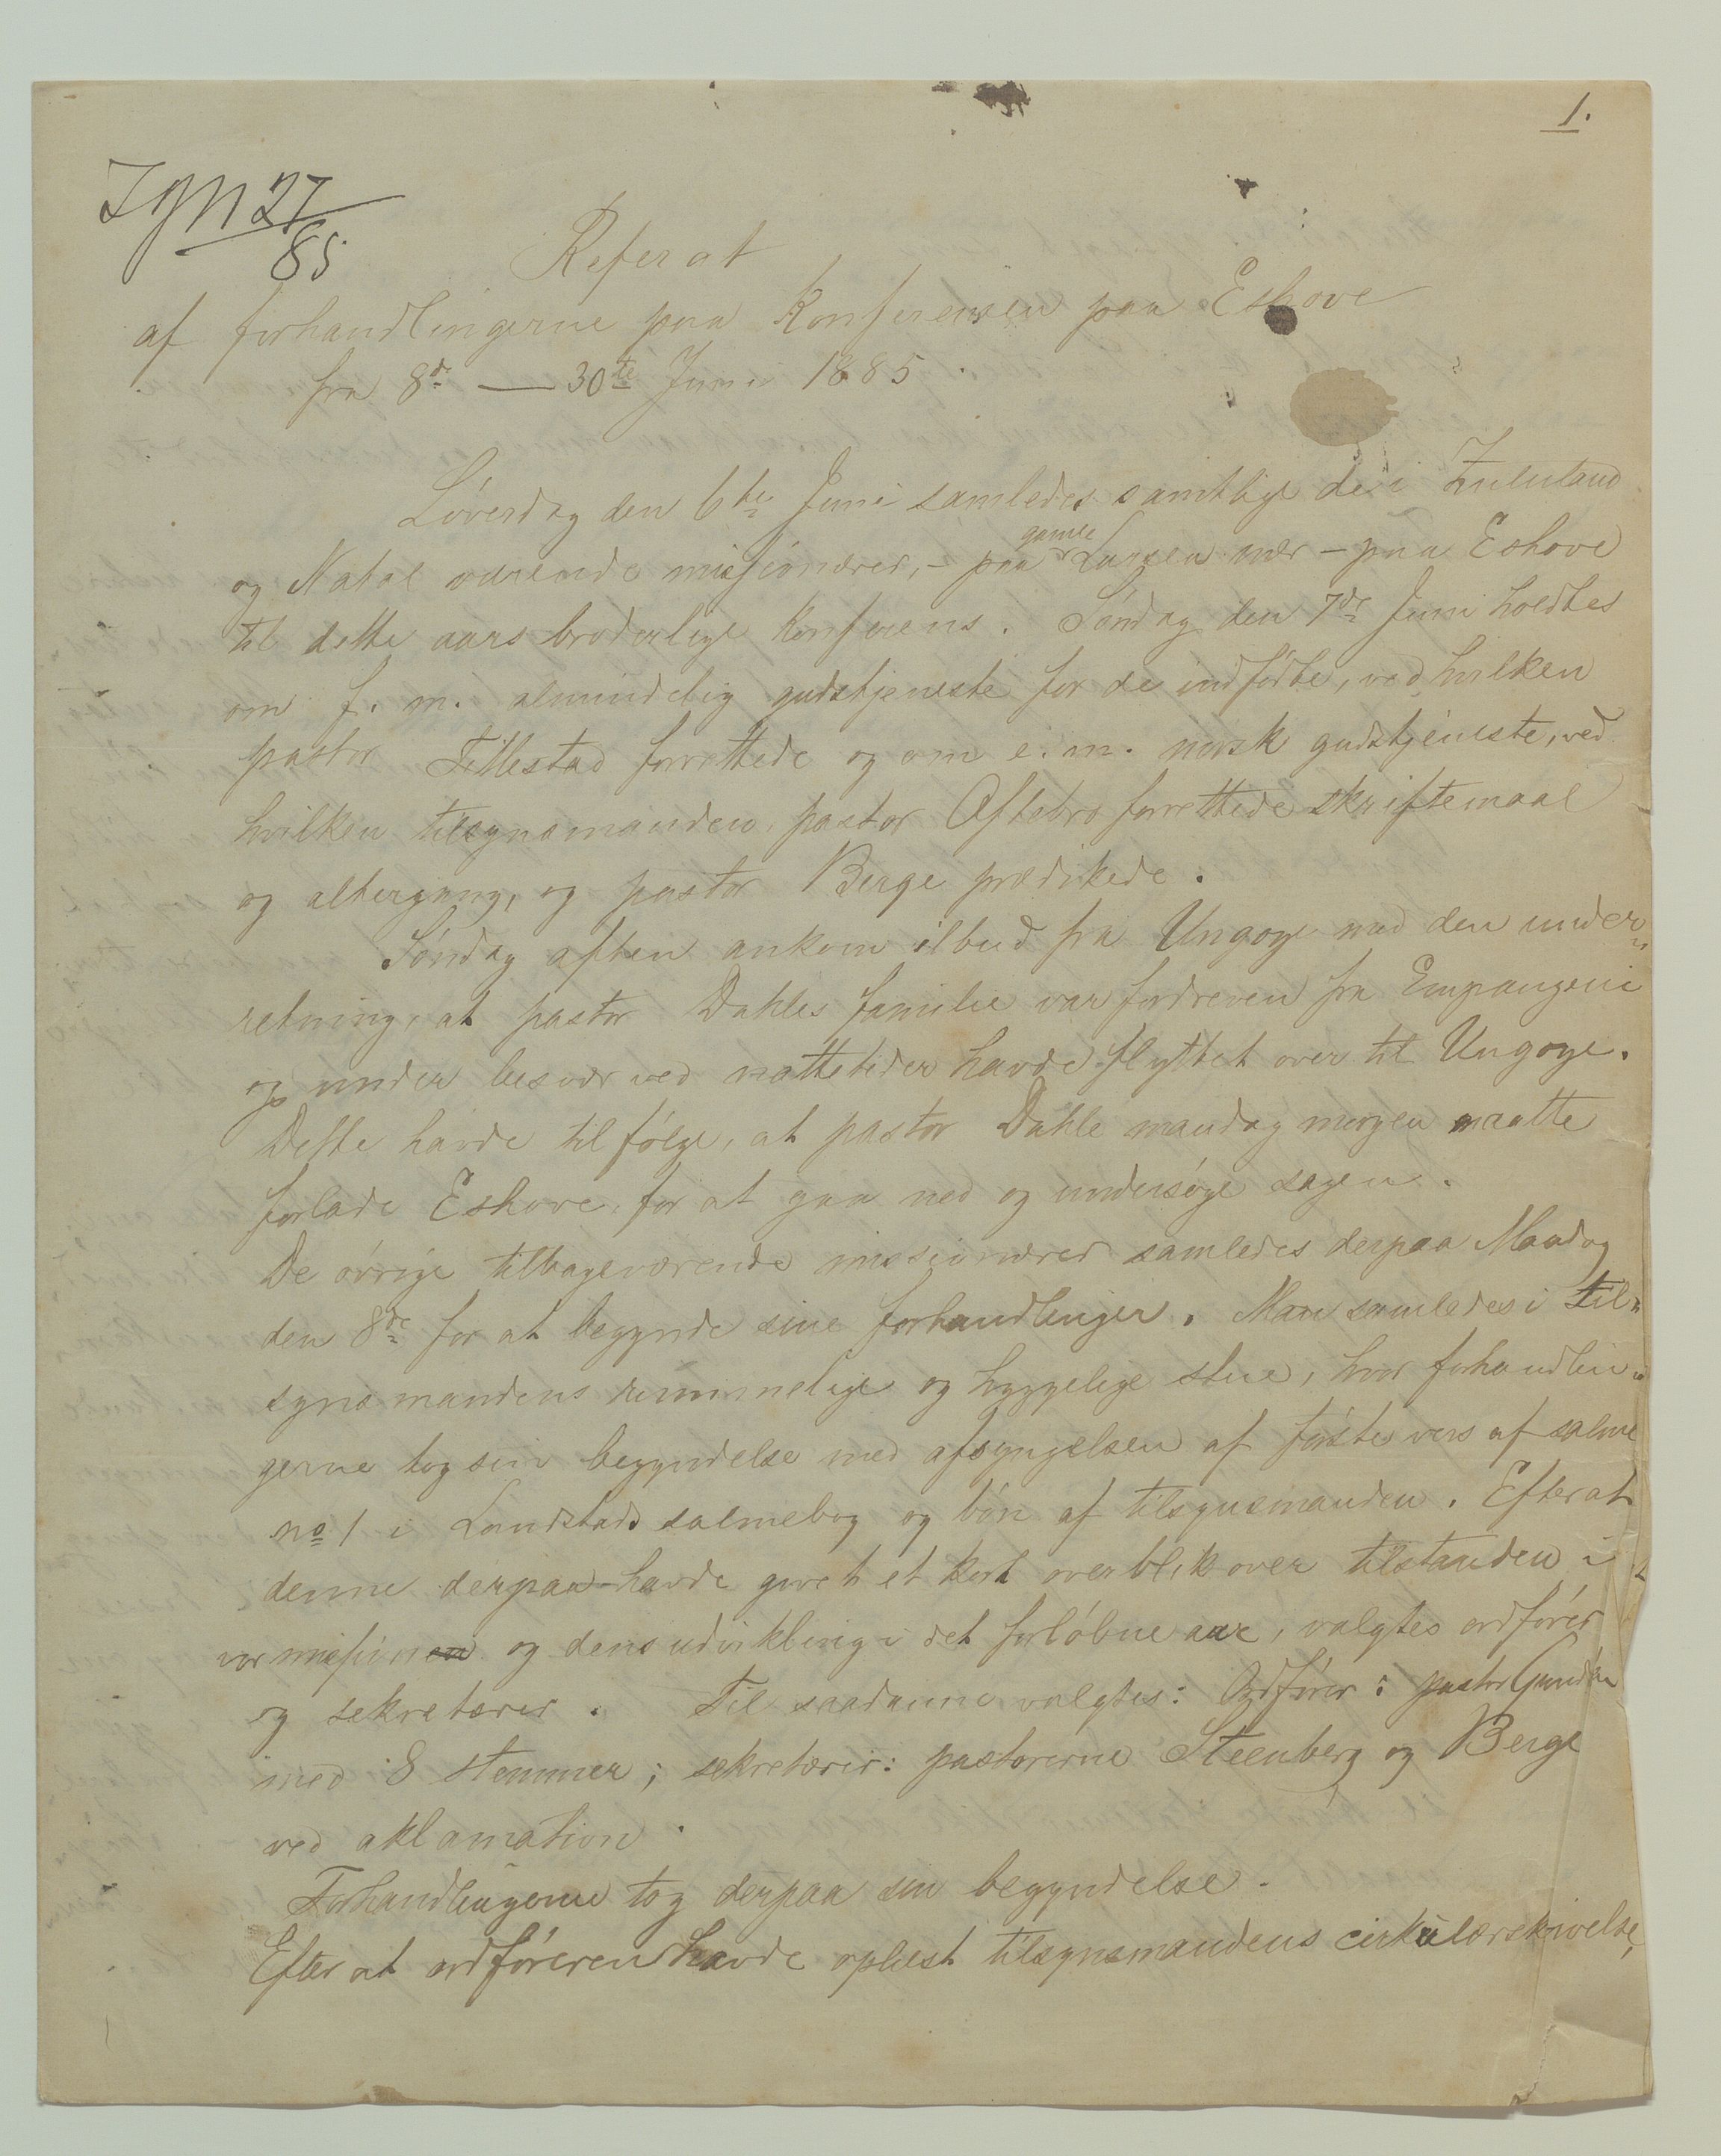 1.
JGN 27
85
Referat
af forhandlingerne paa Konferensen paa Eshove
fra 8de — 30te Juni 1885.
Löverdag den 6te Juni samledes samtlige de i Zululand
og Natal værende missionærer, – paa gamle Larsen nær – paa Eshove
til dette aars broderlige Konferens. Söndag den 7de Juni holdtes
om f. m. almindelig gudstjeneste for de indfödte, ved hvilken
pastor Titlestad forrettede og om e. m. norsk gudstjeneste, ved
hvilken tilsynsmanden, pastor Oftebro forrettede skriftemaal
og altergang, og pastor Berge prædikede.
Söndag aften ankom ilbud fra Ungoye med den under„
retning, at pastor Dahles familie var fordreven fra Empangeni
og under besvær ved nattetider havde flyttet over til Ungoye.
Dette havde til fölge, at pastor Dahle mandag morgen maatte
forlade Eshove, for at gaa ned og undersöge sagen.
De övrige tilbageværende missionærer samledes derpaa Mandag
den 8de for at begynde sine forhandlinger. Man samledes i til„
synsmandens rummelige og hyggelige stue, hvor forhandlin„
gerne tog sin begyndelse med afsyngelsen af förste vers af salme
no 1 i Landstads salmebog og bön af tilsynsmanden. Efterat
denne derpaa havde givet et kort overblik over tilstanden i
vor mission og dens udvikling i det forlöbne aar, valgtes ordförer
og sekretærer. Til saadanne valgtes: Ordförer: pastor Gundersen
med 8 stemmer; sekretærer: pastorerne Steenberg og Berge
ved aklamation.
Forhandlingerne tog derpaa sin begyndelse.
Efter at ordföreren havde oplæst tilsynsmandens cirkulærskrivelse,